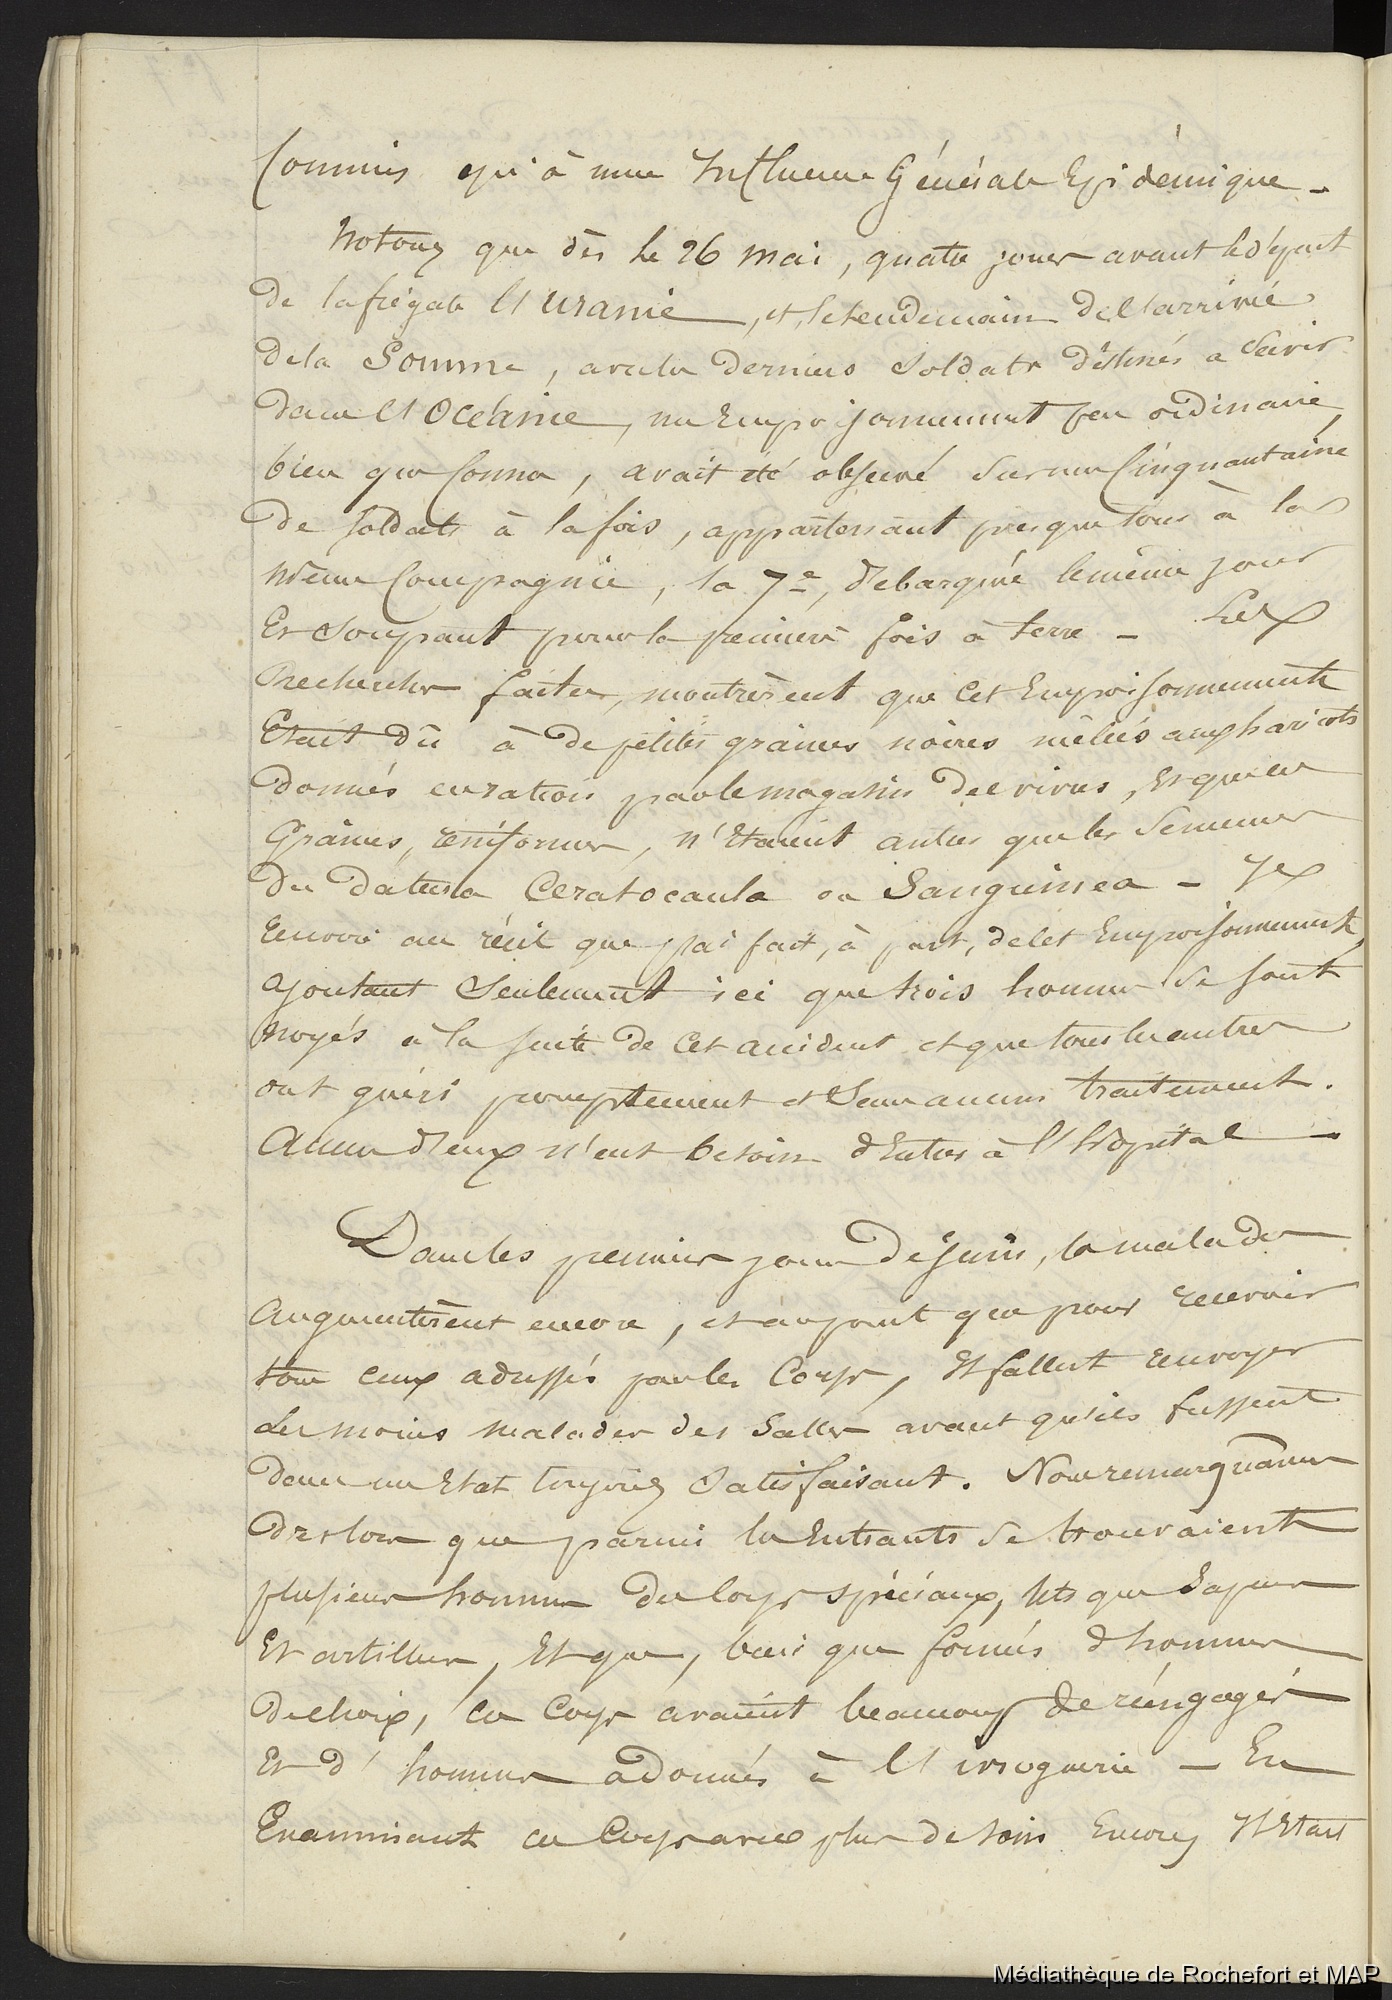 Commis qu'à une Influence Générale Epidémique -
Notons que dès le 26 mai, quatre jours avant le départ
de la frégate l'Uranie, et le lendemain de l'arrivée
de la Somme, avec les derniers soldats destinés à servir
dans l'Océanie, un Empoisonnement peu ordinaire,
bien que connu, avait été observé sur une cinquantaine
de soldats à la fois, appartenant presque tous à la
même Compagnie, la 7e, débarquée le même jour
Et soupant pour la première fois à terre - Les
Recherches faites, montrèrent que cet Empoisonnement
Etait dû à de petites graines noires mêlées aux haricots
donnés en ration par le magasin des vivres, et que ces
Graines, réniformes, n'étaient autres que les semences
du datura Ceratocaula ou Sanguinea - Je
Renvoie au récit que j'ai fait, à part, de cet Empoisonnement,
ajoutant seulement ici que trois hommes se sont
noyés à la suite de cet accident et que tous les autres
ont guéri promptement et sans aucun traitement.
Aucun d'eux n'eut besoin d'Entrer à l'hôpital -
Dans les premiers jours de Juin, les malades
augmentèrent encore, et au point que pour recevoir
tous ceux adressés par les Corps, Il fallut renvoyer
les moins malades des salles avant qu'ils fussent
dans un Etat toujours satisfaisant. Nous remarquâmes
dès lors que parmi les Entrants se trouvaient
plusieurs hommes des Corps spéciaux, tels que Sapeurs
Et artilleurs, Et que, bien que formés d'hommes
de choix, ces Corps avaient beaucoup de réengagés
Et d'hommes adonnés à l'ivrognerie - En
Examinant ces Corps avec plus de soin Encore, Il Etait
Médiathèque de Rochefort et MAP